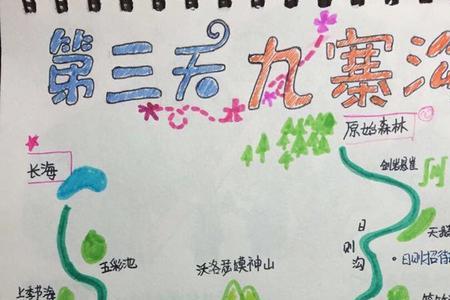 第三天 九寨沟
原始森林
长海
剑岩悬崖
日则沟
天鹅
五彩池
沃洛色嫫神山
日则招待
上季节海